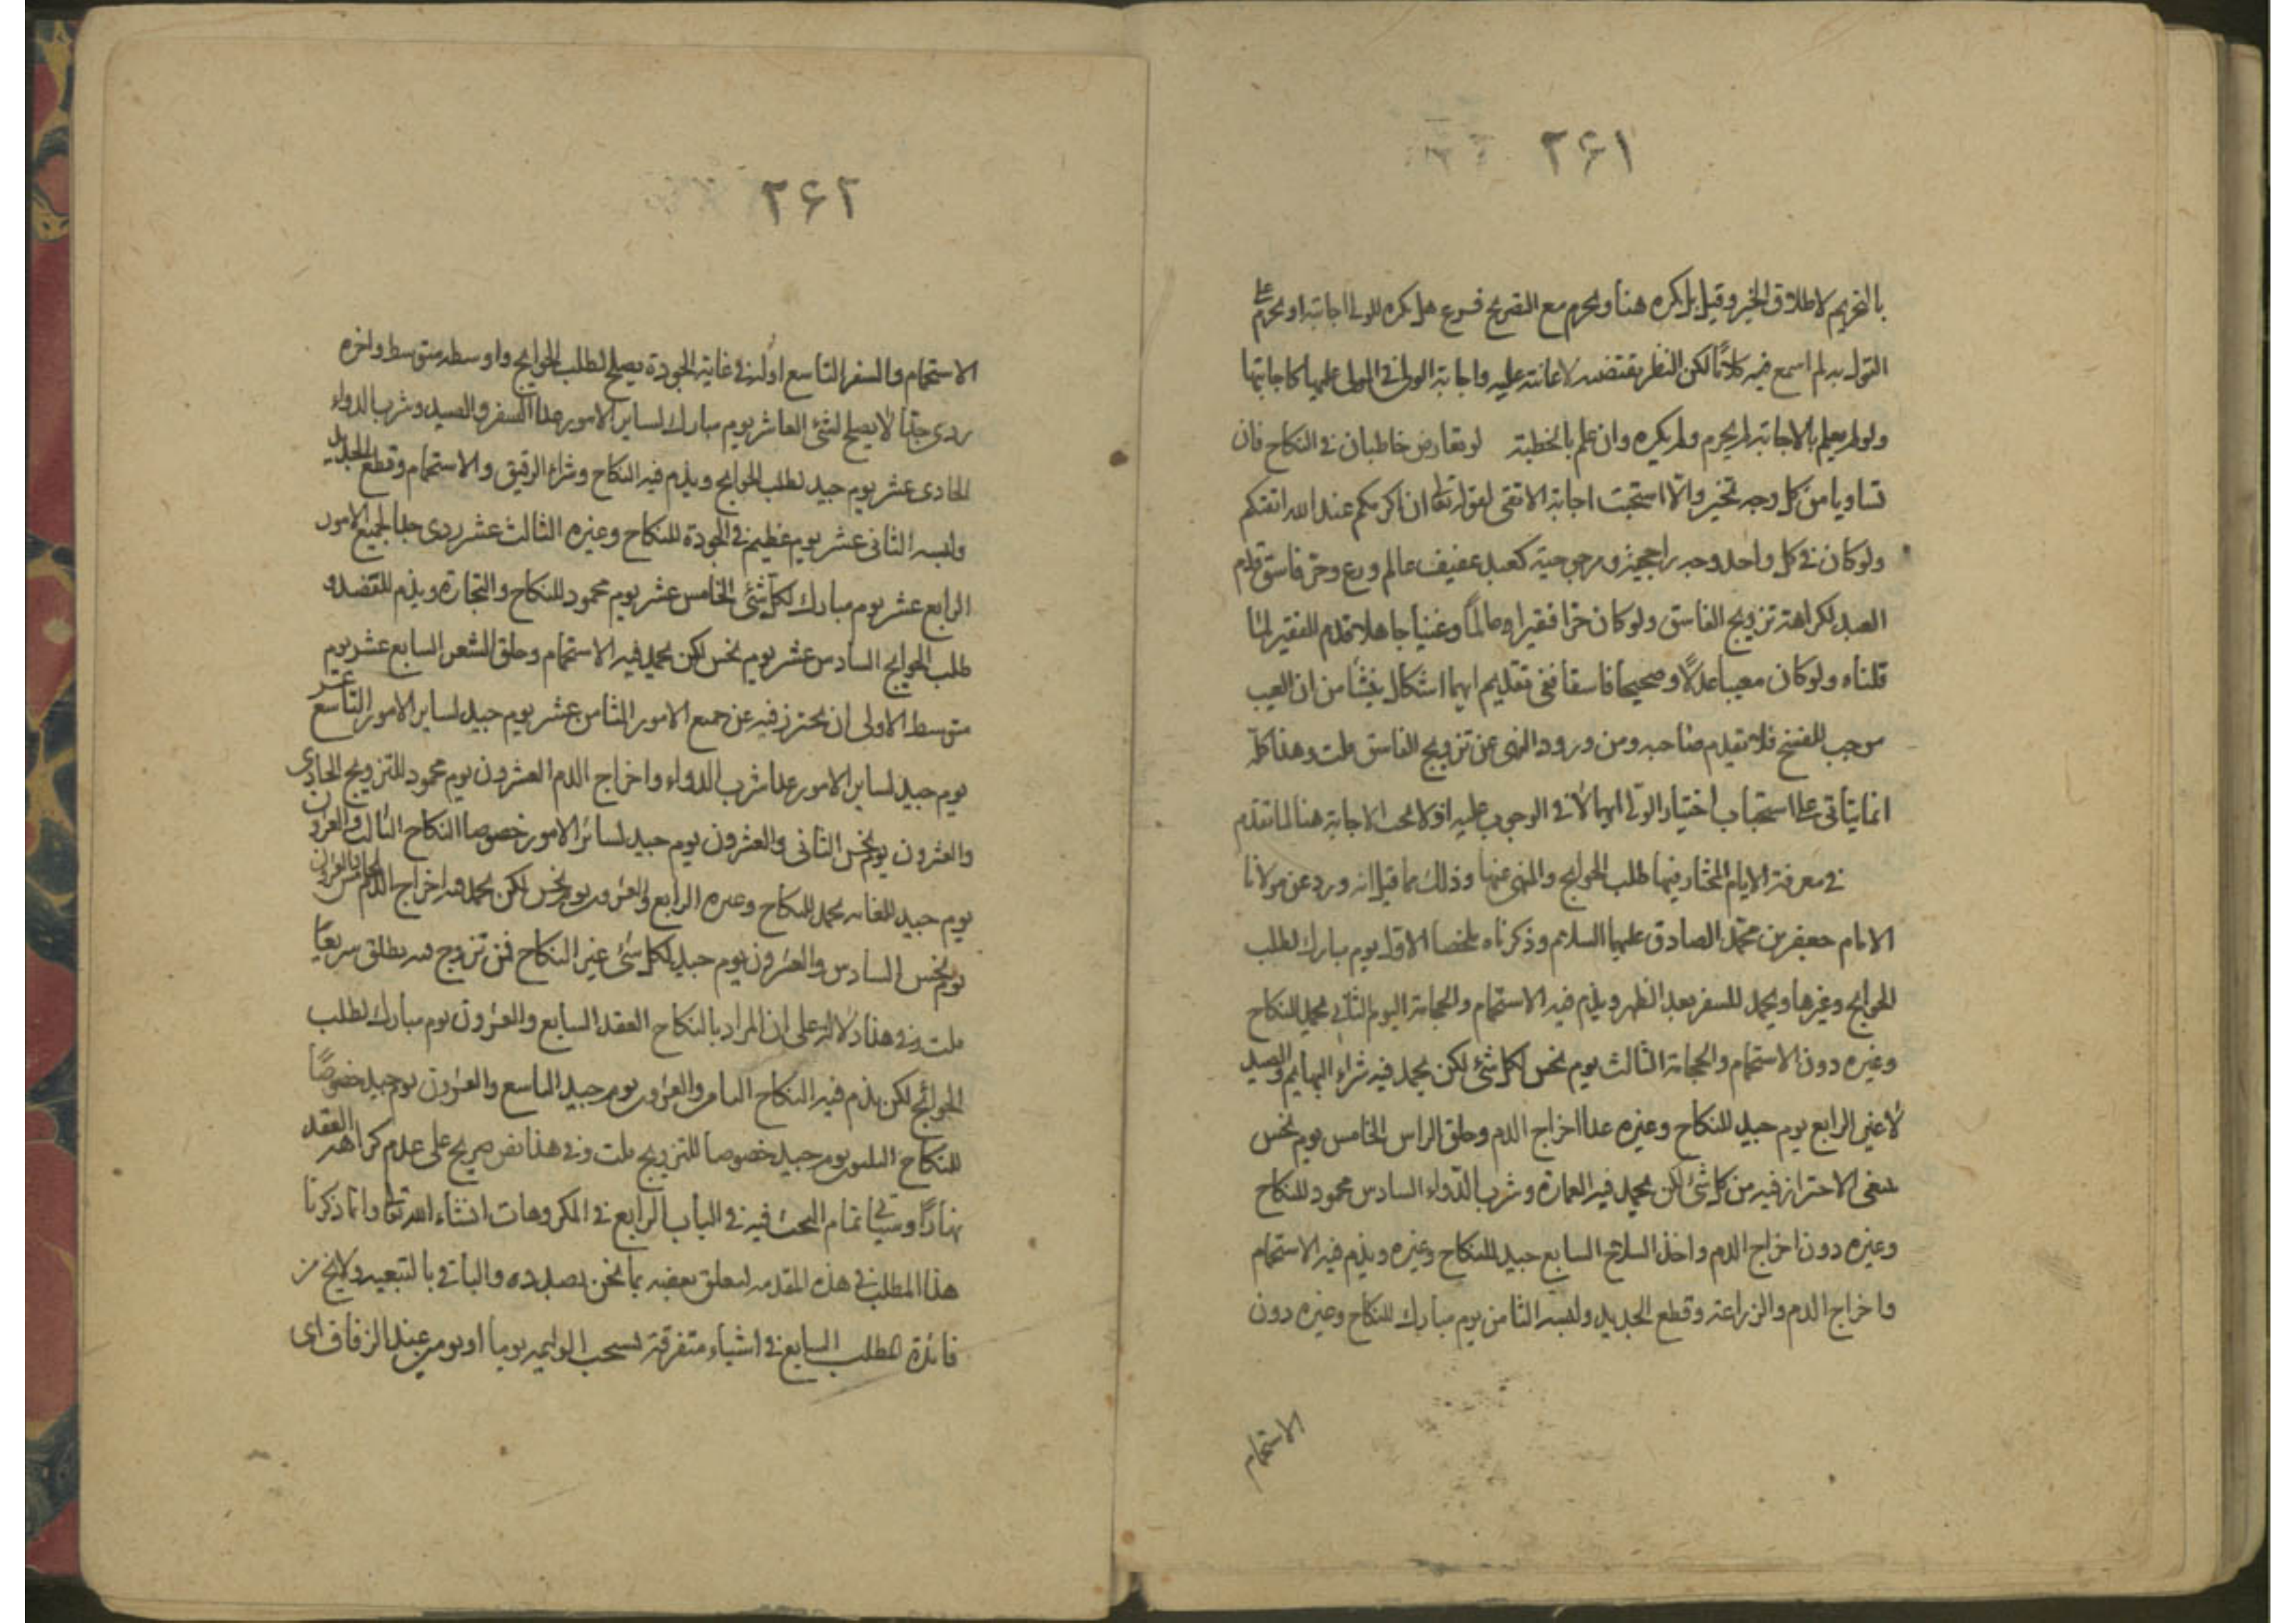 ٢۶١
بالتحريم لاطلاق الخبر وقيل بل يكره هنا ويحرم مع التصريح فرع هل يكره للولى اجابته او يحرم على
القول به لم اسمع فيه كلامًا لكن النظر يقتضيه لاعانته عليه واجابة الولى فى المولى عليها كاجابتها
ولو لم يعلم بالاجابة لم يحرم ولم يكره وان علم بالخطبة لو تعارض خاطبان فى النكاح فان
تساويا من كل وجه تخير والّا استحبت اجابة الاتقى لقوله تعا ان اكرمكم عند الله اتقيكم
ولو كان فى كل واحد وجه راجحية ومرجوحية كعبد عفيف عالم ورع وحرّ فاسق قدم
العبد لكراهة تزويج الفاسق ولو كان حرّا فقيرا وعالمًا وغنيا جاهلا قدم الفقير لما
قلناه ولو كان معيبا عدلًا وصحيحا فاسقا ففى تقديم ايهما اشكال ينشا من ان العيب
موجب للفسخ فلا يقدم صاحبه ومن ورود النهى عن تزويج الفاسق قلت وهذا كلّه
انما يتأتى على استحباب اختيار الولى ايهما لا فى الوجوب عليه اذ لا تجب الاجابة هنا لما تقدم
فى معرفة الايام المختار فيها طلب الحوايج والمنهى عنها وذلك مما قيل انه ورد عن مولانا
الامام جعفر بن محمّد الصادق عليهما السلام وذكرناه ملخصا الاول يوم مبارك لطلب
الحوايج وغيرها ويحمد للسفر بعد الظهر ويذم فيه الاستحمام والحجامة اليوم الثانى يحمد للنكاح
وغيره دون الاستحمام والحجامة الثالث يوم نحس لكل شئ لكن يحمد فيه شراء البهايم والصيد
لا غير الرابع يوم جيد للنكاح وغيره عدا اخراج الدم وحلق الراس الخامس يوم نحس
ينبغى الاحتراز فيه من كل شئ لكن يحمد فيه العمارة وشرب الدواء السادس محمود للنكاح
وغيره دون اخراج الدم واخذ السلاح السابع جيد للنكاح وغيره ويذم فيه الاستحمام
واخراج الدم والزراعة وقطع الجديد ولبسه الثامن يوم مبارك للنكاح وغيره دون
الاستحمام
٢۶٢
الاستحمام والسفر التاسع اوله فى غاية الجودة يصلح لطلب الحوايج واوسطه متوسط واخره
ردى جدّا لا يصلح لشئ العاشر يوم مبارك لساير الامور عدا السفر والصيد وشرب الدواء
الحادى عشر يوم جيد لطلب الحوايج ويذم فيه النكاح وشراء الرقيق والاستحمام وقطع الجديد
ولبسه الثانى عشر يوم عظيم فى الجودة للنكاح وغيره الثالث عشر ردى جدا لجميع الامور
الرابع عشر يوم مبارك لكل شئ الخامس عشر يوم محمود للنكاح والتجارة ويذم للفصد و
طلب الحوايج السادس عشر يوم نحس لكن يحمد فيه الاستحمام وحلق الشعر السابع عشر يوم
متوسط الاولى ان يحترز فيه عن جميع الامور الثامن عشر يوم جيد لساير الامور التاسع عشر
يوم جيد لساير الامور عدا شرب الدواء واخراج الدم العشرون يوم محمود للتزويج الحادى
والعشرون يوم نحس الثانى والعشرون يوم جيد لسائر الامور خصوصا النكاح الثالث والعشرون
يوم جيد للغاية يحمد للنكاح وغيره الرابع والعشرون يوم نحس لكن يحمد فيه اخراج الدم الخامس والعشرون
يوم نحس السادس والعشرون يوم جيد لكل شئ غير النكاح فمن تزوج فيه يطلق سريعًا
قلت وفى هذا دلالة على ان المراد بالنكاح العقد السابع والعشرون يوم مبارك لطلب
الحوائج لكن يذم فيه النكاح الثامن والعشرون يوم جيد التاسع والعشرون يوم جيد خصوصًا
للنكاح الثلثون يوم جيد خصوصا للتزويج قلت وفى هذا نص صريح على عدم كراهة العقد
نهارًا وسياتى تمام البحث فيه فى الباب الرابع فى المكروهات انشاء الله تعا وانما ذكرنا
هذا المطلب فى هذه المقدمة لتعلق بعضه بما نحن بصدده والباقى بالتبعيه ولا يخ من
فائدة المطلب السابع فى اشياء متفرقة تستحب الوليمه يوما او يومين عند الزفاف اى